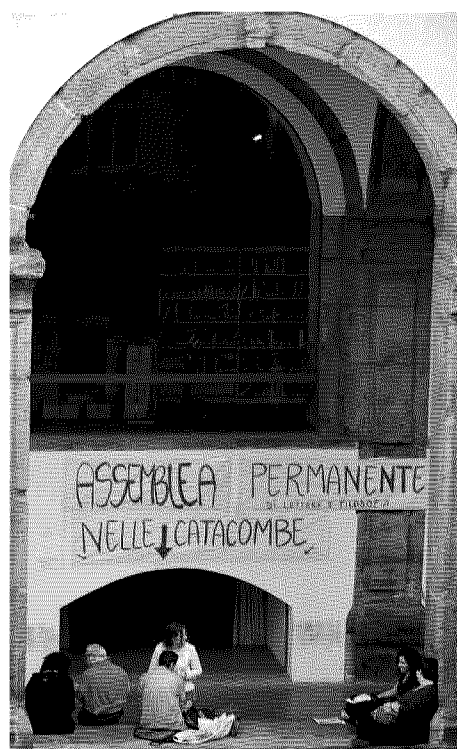 ASSEMBLEA PERMANENTE
DI LETTERE E FILOSOFIA
NELLE CATACOMBE